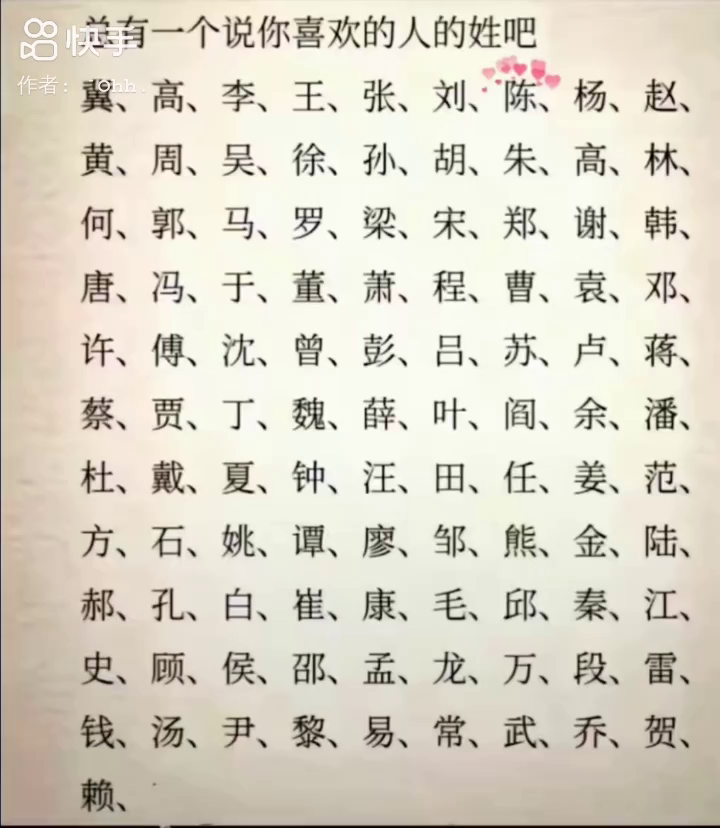 总有一个说你喜欢的人的姓吧
快手
作者: Ohh.
冀、高、李、王、张、刘、陈、杨、赵、
黄、周、吴、徐、孙、胡、朱、高、林、
何、郭、马、罗、梁、宋、郑、谢、韩、
唐、冯、于、董、萧、程、曹、袁、邓、
许、傅、沈、曾、彭、吕、苏、卢、蒋、
蔡、贾、丁、魏、薛、叶、阎、余、潘、
杜、戴、夏、钟、汪、田、任、姜、范、
方、石、姚、谭、廖、邹、熊、金、陆、
郝、孔、白、崔、康、毛、邱、秦、江、
史、顾、侯、邵、孟、龙、万、段、雷、
钱、汤、尹、黎、易、常、武、乔、贺、
赖、